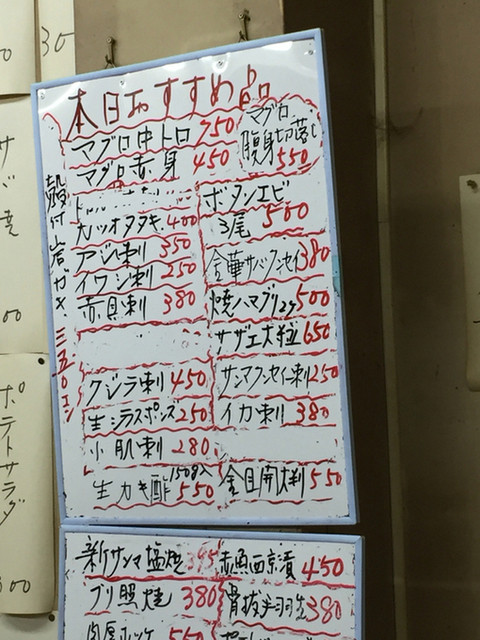 本日おすすめ品
マグロ中トロ 750
マグロ赤身 450
カツオタタキ 400
アジ刺 350
イワシ刺 250
赤貝刺 380
クジラ刺 450
生シラスポンズ 250
小肌刺 280
生カキ酢 150g入 550
マグロ
腹身切落し
550
ボタンエビ
3尾 500
金華サバクンセイ 380
焼ハマグリ2ケ 500
サザエ大粒 650
サンマクンセイ刺 250
イカ刺 380
金目開大判 550
殻付岩ガキ 三五〇エン
新サンマ塩焼 395
ブリ照焼 380
肉厚ホッケ 550
赤魚西京漬 450
骨抜手羽先 380
30
ポテトサラダ
300